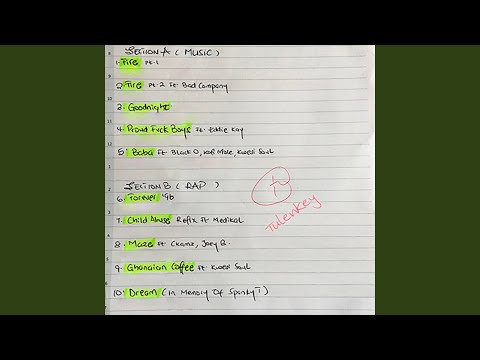 SECTION A ( MUSIC )
1. Fire Pt. 1
2. Fire Pt. 2 Ft. Bad Company
3. Goodnight
4. Proud Fvck Boys Ft. Eddie Kay
5. Baba Ft. Black O, Kofi Mole, Kwesi Soul
SECTION B ( RAP )
6. Forever '96
7. Child Abuse Refix Ft Medikal
8. Maze Ft Ckamz, Joey B.
9. Ghanaian Coffee Ft. Kwesi Soul
10. Dream ( In Memory Of Spanky T )
Tulenkey